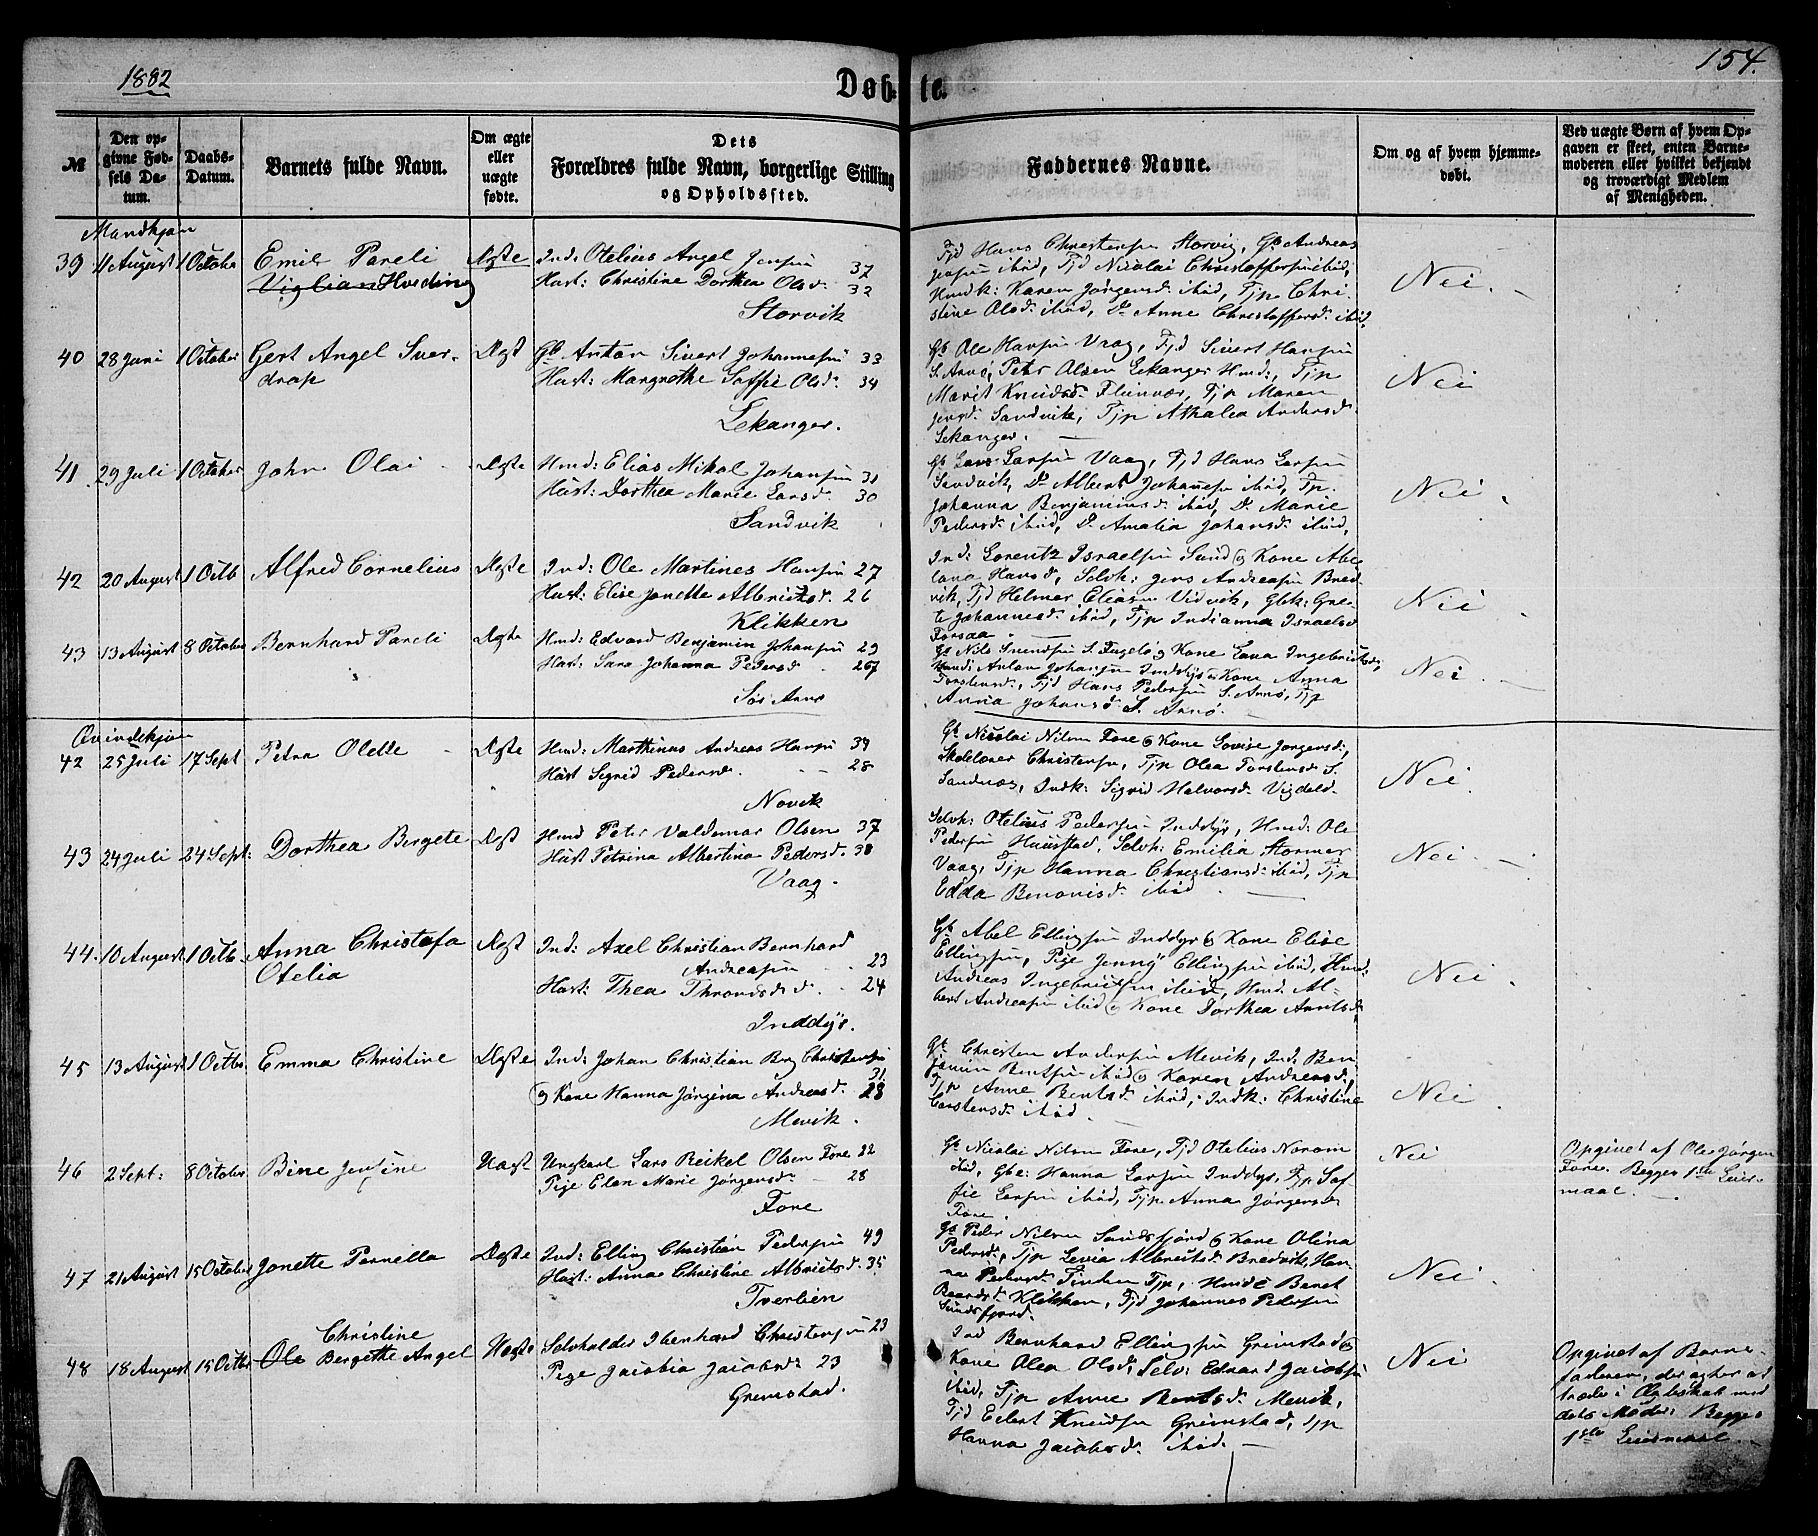 1882
154.
Døbte.
№
Den opgivne Fødsels Datum.
Daabs-Datum.
Barnets fulde Navn.
Om ægte eller uægte fødte.
Dets Forældres fulde Navn, borgerlige Stilling og Opholdssted.
Faddernes Navne.
Om og af hvem hjemmedøbt.
Ved uægte Børn af hvem Opgaven er skeet, enten Barnemoderen eller hvilket bekjendt og troværdigt Medlem af Menigheden.
Mandkjøn
39 11 August 1 Octobr Emil Pareli Ægte Ind: Otelius Angel Jensen 37
Viglian Hveding Hust: Christine Dorthea Olsd. 32
Storvik
Tjd Hans Christensen Storvig, Gb Andreas
Jensen ibid, Tjd Nicolai Christoffersen ibid,
Hmdk: Karen Jørgensd. ibid, Tjp Chri-
stine Olsd. ibid, Do Anne Christoffersd. ibid.
Nei.
40 28 Juni 1 October Gert Angel Sver- Ægt Gb Anton Sivert Johannesen 33
drop Hust: Margrethe Soffie Olsd. 34
Lekanger.
Gb Ole Hansen Vaag, Tjd Sivert Hansen
S. Arnø, Petr Olsen Lekanger Hmd:, Tjp
Marit Knudsd. Fleinvær, Tjp Maren
Jensd. Sandvik, Tjp Athalia Andersd.
Lekanger.
Nei
41 29 Juli 1 October John Olai Ægte Hmd: Elias Mikal Johansen 31
Hust: Dorthea Marie Larsd. 30
Sandvik
Gb Lars Larsen Vaag, Tjd Hans Larsen
Sandvik, Do Albert Johansen ibid, Tjp.
Johanna Benjaminsd. ibid, Do Marie
Pedersd. ibid, Do Amalia Johansd. ibid.
Nei.
42 20 August 1 Octb Alfred Cornelius Ægte Ind: Ole Martines Hansen 27
Hust: Elise Jonette Albrictsd. 26
Klikken
Ind: Lorentz Israelsen Sund og Kone Abe-
lana Hansd, Selvh: Jens Andreasen Bred-
vik, Tjd Helmer Eliasen Vidvik, Gbk: Gre-
te Johannesd. ibid, Tjp Indianna Israelsd
Forsaa.
Nei
43 13 August 8 October Bernhard Pareli Ægte Hmd: Edvard Benjamin Johansen 29
Hust: Sara Johanna Pedersd. 267
Sør Arnø
Gb Nils Svendsen S. Fugelø og Kone Lana Ingebrictsd,
Hmd: Anton Johansen Inddyr og Kone Anna
Torstensd., Tjd Hans Pedersen S. Arnø, Tjp
Anna Johansd. S. Arnø.
Nei.
Qvindekjøn
42 25 Juli 17 Sept Petra Olette Ægte Hmd: Marthinus Andreas Hansen 39
Hust Sigrid Pedersd. 28
Novik
Gb Nicolai Nilsen Fore og Kone Lovise Jørgensd,
Skolelærer Christensen, Tjp Olea Torstensd. S.
Sandnæs, Indk: Sigrid Halvorsd. Vigdel
Nei
43 24 Juli 24 Sept: Dorthea Bergete Ægt Hmd Peter Valdemar Olsen 37
Hust Petrina Albertina Pedersd. 38
Vaag.
Selvh: Otelius Pedersen Inddyr, Hmd: Ole
Pedersen Haustad, Selvh: Emilia Stormer
Vaag, Tjp Hanna Christiansd. ibid, Tjp
Edda Benonisd. ibid
Nei.
44. 10 August 1 Octb. Anna Christofa Ægt Ind: Axel Christian Bernhard
Otelia Andreasen 23
Hust: Thea Throndsd. 24
Inddyr.
Gb Abel Ellingsen Inddyr og Kone Elise
Ellingsen, Pige Jenny Ellingsen ibid, Hmd:
Andreas Ingebrictsen ibid, Hmd. Al-
bert Andreasen ibid og Kone Dorthea Arntsd.
Nei.
45 13 August 1 Octb. Emma Christine Ægte Ind: Johan Christian Brg Christensen
31
og Kone Hanna Jørgina Andreasd. 28
Mevik.
Gb Christen Andersen Mevik, Ind: Ben-
jamin Bentsen ibid og Karen Andreasd,
Tjp Anne Bentsd. ibid, Indk: Christine
Carstensd. ibid.
Nei.
46 2 Sept: 8 October Bine Jensine Uægt Ungkarl Lars Reikel Olsen Fore 22
Pige Elen Marie Jørgensd. 28
Fore
Gb Nicolai Nilsen Fore, Tjd Otelius Norom
ibid, Gbe: Hanna Larsen Inddyr, Tjp Sof-
fie Larsen ibid, Tjp Anna Jørgensd.
Fore.
Nei
Opgivet af Ole Jørgen
Fore. Begges 1ste Leier-
maal.
47 21 August 15 October Jonette Pernella Ægte Ind: Elling Christian Pedersen 49
Hust: Anna Christine Albrictsd. 35
Tverlien
Gb Peder Nilsen Sundsfjord og Kone Olina
Pedersd., Tjp Levia Albrictsd Bredvik, Han-
na Pedersd. Tjp, Hmd: Beret
Baardsd. Klikken, Tjd Johannes Pedersen
Sundsfjord.
Nei.
Christine
48 18 August 15 Octb. Ole Bergethe Angel Uægte Selvholder Ibenhard Christensen 23
Pige Jacobia Jacobsd. 23
Grimstad.
Ind Bernhard Ellingsen Grimstad og
Kone Olea Olsd, Selv: Edvard Jacobsen
ibid, Tjp Anne Bentsd. Mevik,
Tjd Eilert Knudsen Grimstad, Tjp
Hanna Jacobsd. ibid.
Nei
Opgivet af Barne-
faderen, der agter at
træde i Ægteskab med
dets Moder. Begges
1ste Leiermaal.